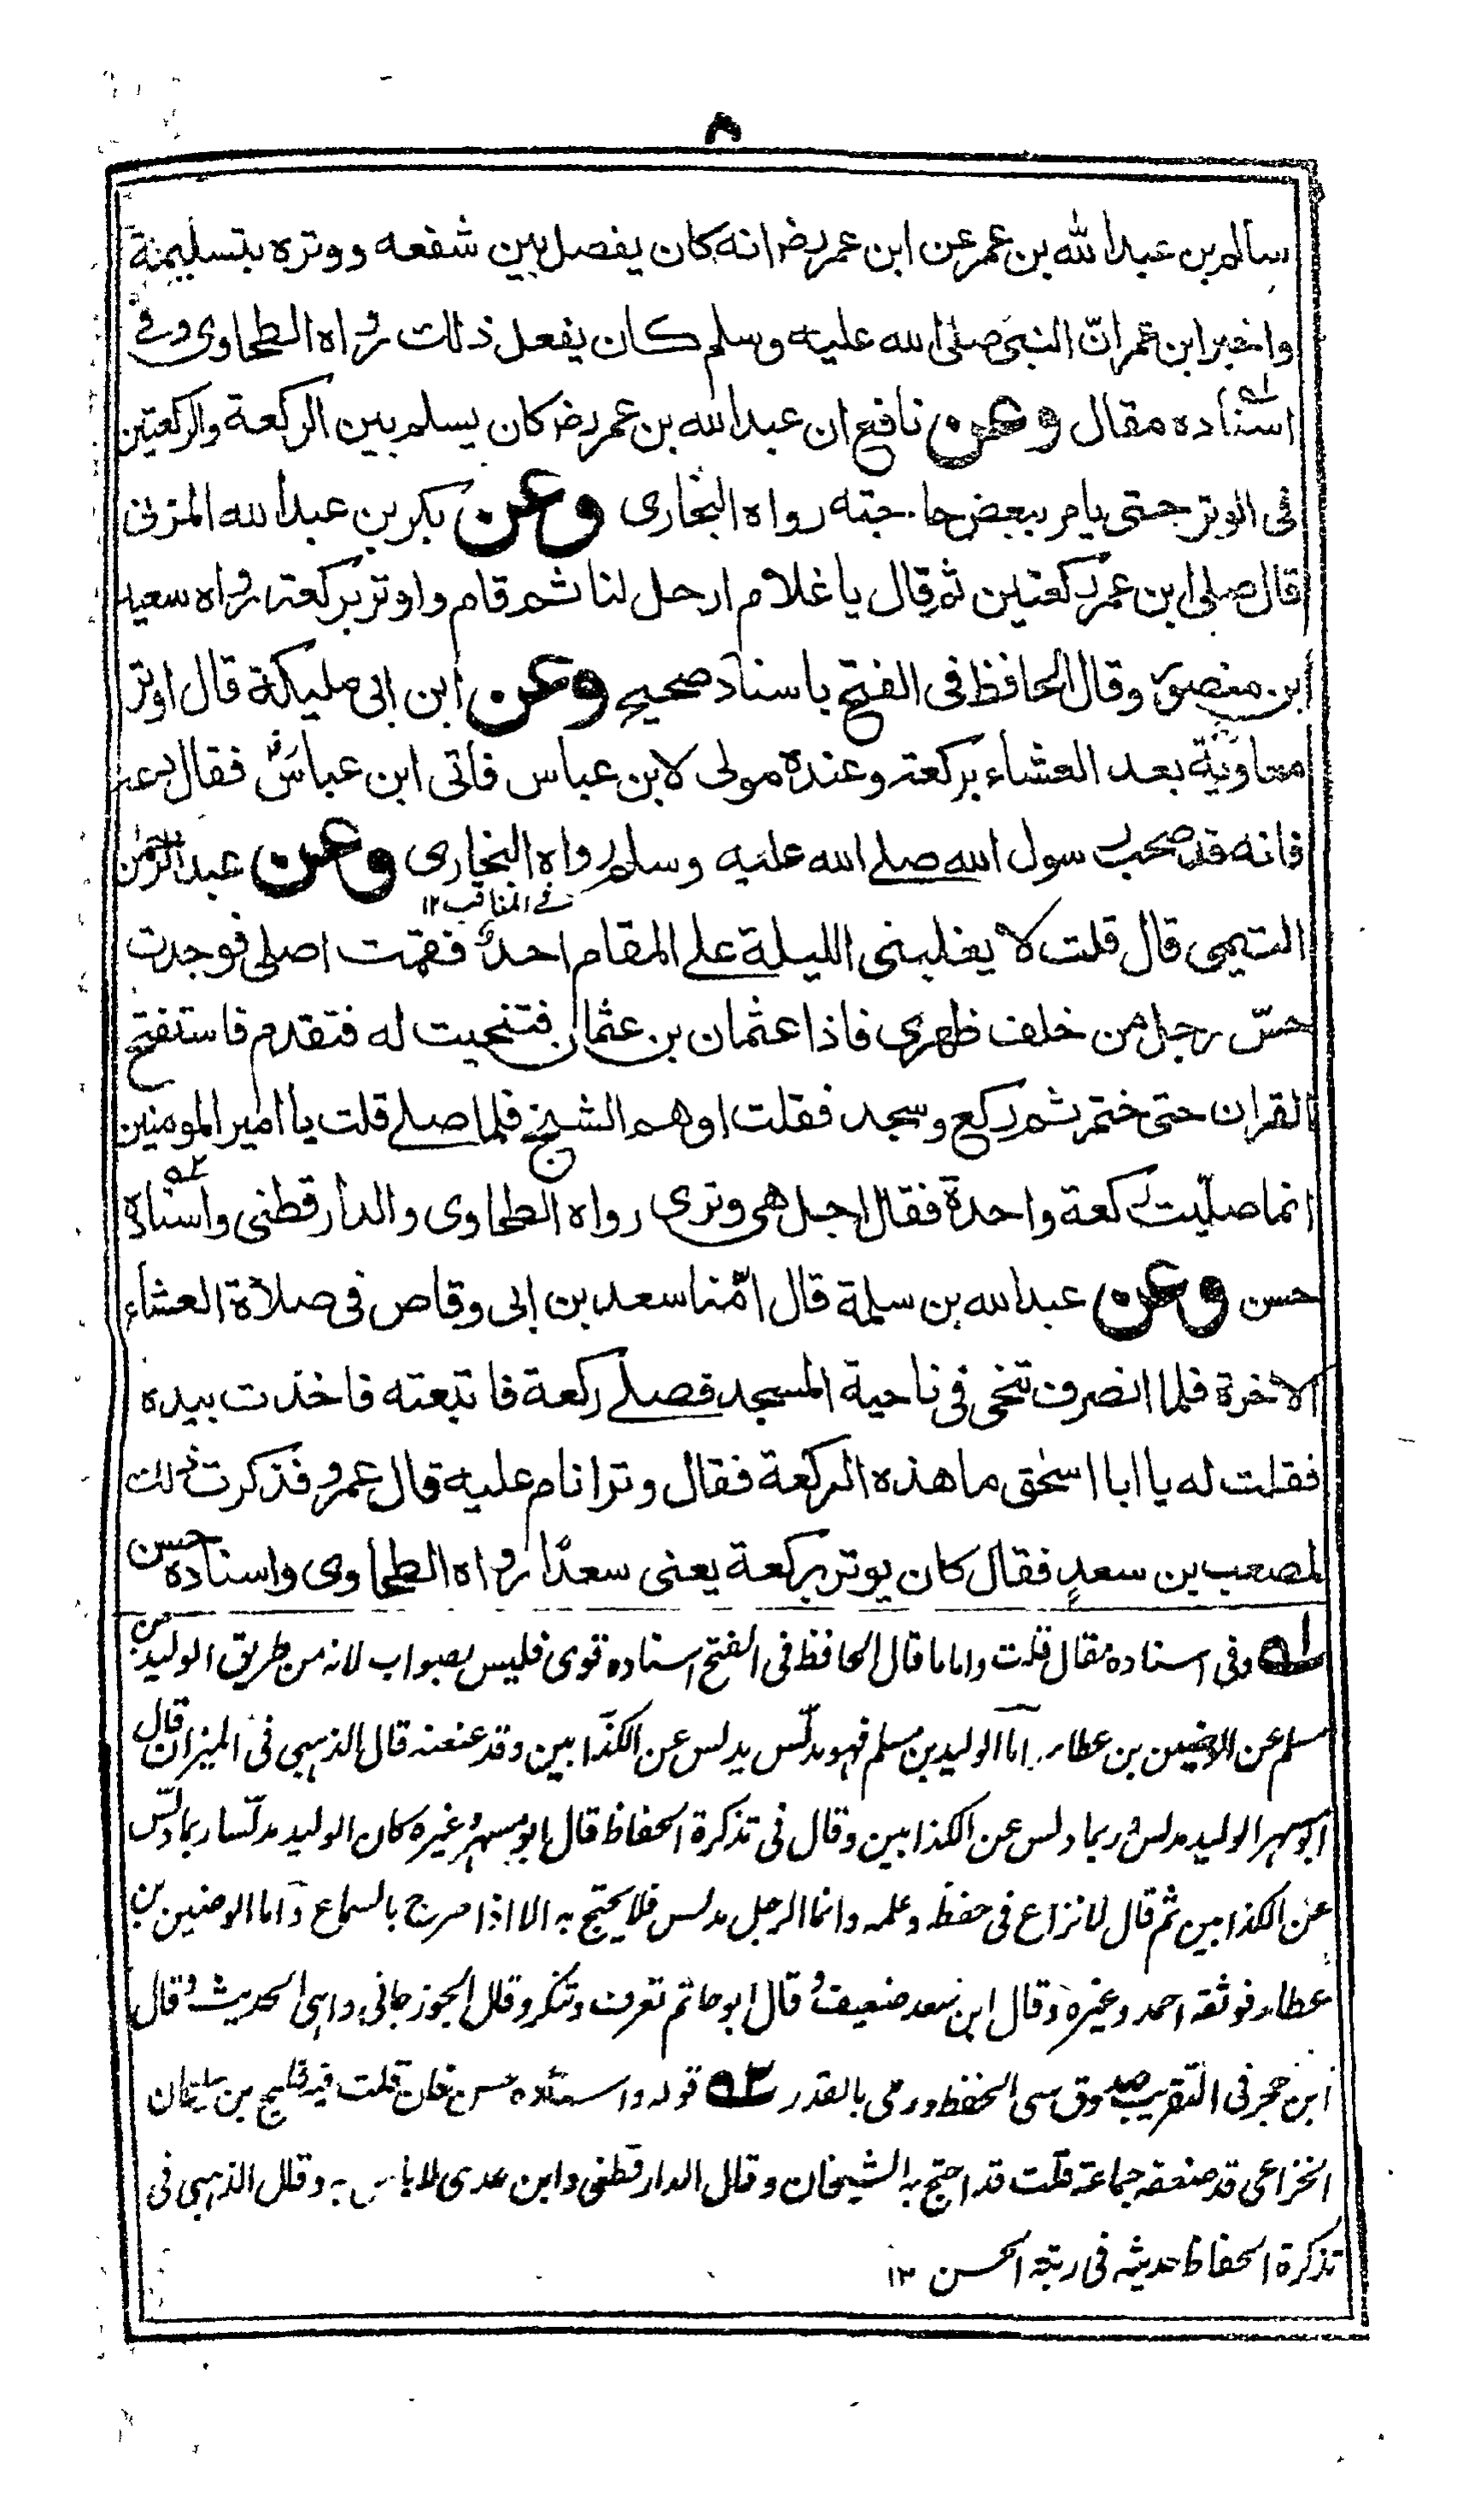 ٨
سالم بن عبد الله بن عمر عن ابن عمر رض انه كان يفصل بين شفعه ووتره بتسليمة
واخبر ابن عمر انّ النبى صلى الله عليه وسلم كان يفعل ذلك رواه الطحاوى وفى
اسناده مقال وعن نافع ان عبد الله بن عمر رض كان يسلم بين الركعة والركعتين
فى الوتر حتى يامر ببعض حاجته رواه البخارى وعن بكر بن عبد الله المزنى
قال صلى ابن عمر ركعتين ثم قال يا غلام ارحل لنا ثم قام واوتر بركعة رواه سعيد
ابن منصور وقال الحافظ فى الفتح باسناد صحيح وعن ابن ابى مليكة قال اوتر
معاوية بعد العشاء بركعة وعنده مولى لابن عباس فاتى ابن عباس فقال دعه
فانه قد صحب رسول الله صلى الله عليه وسلم رواه البخارى وعن عبد الرحمٰن
فى المناقب ١٢
التيمى قال قلت لا يغلبنى الليلة على المقام احد فقمت اصلى فوجدت
حسّ رجل من خلف ظهرى فاذا عثمان بن عثمان فتنحيت له فتقدم فاستفتح
القران حتى ختم ثم ركع وسجد فقلت اوهم الشيخ فلما صلى قلت يا امير المومنين
انما صلّيت ركعة واحدة فقال اجل هى وترى رواه الطحاوى والدارقطنى واسناده
حسن وعن عبد الله بن سلمة قال امّنا سعد بن ابى وقاص فى صلاة العشاء
الاخرة فلما انصرف تنحى فى ناحية المسجد فصلى ركعة فاتبعته فاخذت بيده
فقلت له يا ابا اسحٰق ما هذه الركعة فقال وتر انام عليه قال عمرو فذكرت ذلك
لمصعب بن سعدٍ فقال كان يوتر بركعة يعنى سعدًا رواه الطحاوى واسناده حسن
١ه وفى اسناده مقال قلت واما ما قال الحافظ فى الفتح اسناده قوى فليس بصواب لانه من طريق الوليد بن
مسلم عن الوضين بن عطاء اما الوليد بن مسلم فهو مدلّس يدلس عن الكذابين وقد عنعنه قال الذهبى فى الميزان قال
ابو مسهر الوليد مدلس ربما دلس عن الكذابين وقال فى تذكرة الحفاظ قال ابو مسهر وغيره كان الوليد مدلّسا ربما دلّس
عن الكذابين ثم قال لا نزاع فى حفظه وعلمه وانما الرجل مدلس فلا يحتج به الا اذا صرح بالسماع واما الوضين بن
عطاء فوثقه احمد وغيره وقال ابن سعد ضعيف وقال ابو حاتم تعرف وتنكر وقال الجوزجانى واهى الحديث وقال
ابن حجر فى التقريب صدوق سىء الحفظ ورمى بالقدر ٢ه قوله واسناده حسن فان قلت فيه فليح بن سليمان
الخزاعى قد ضعفه جماعة قلت قد احتج به الشيخان وقال الدارقطنى وابن عدى لا باس به وقال الذهبى فى
تذكرة الحفاظ حديثه فى رتبة الحسن ١٢